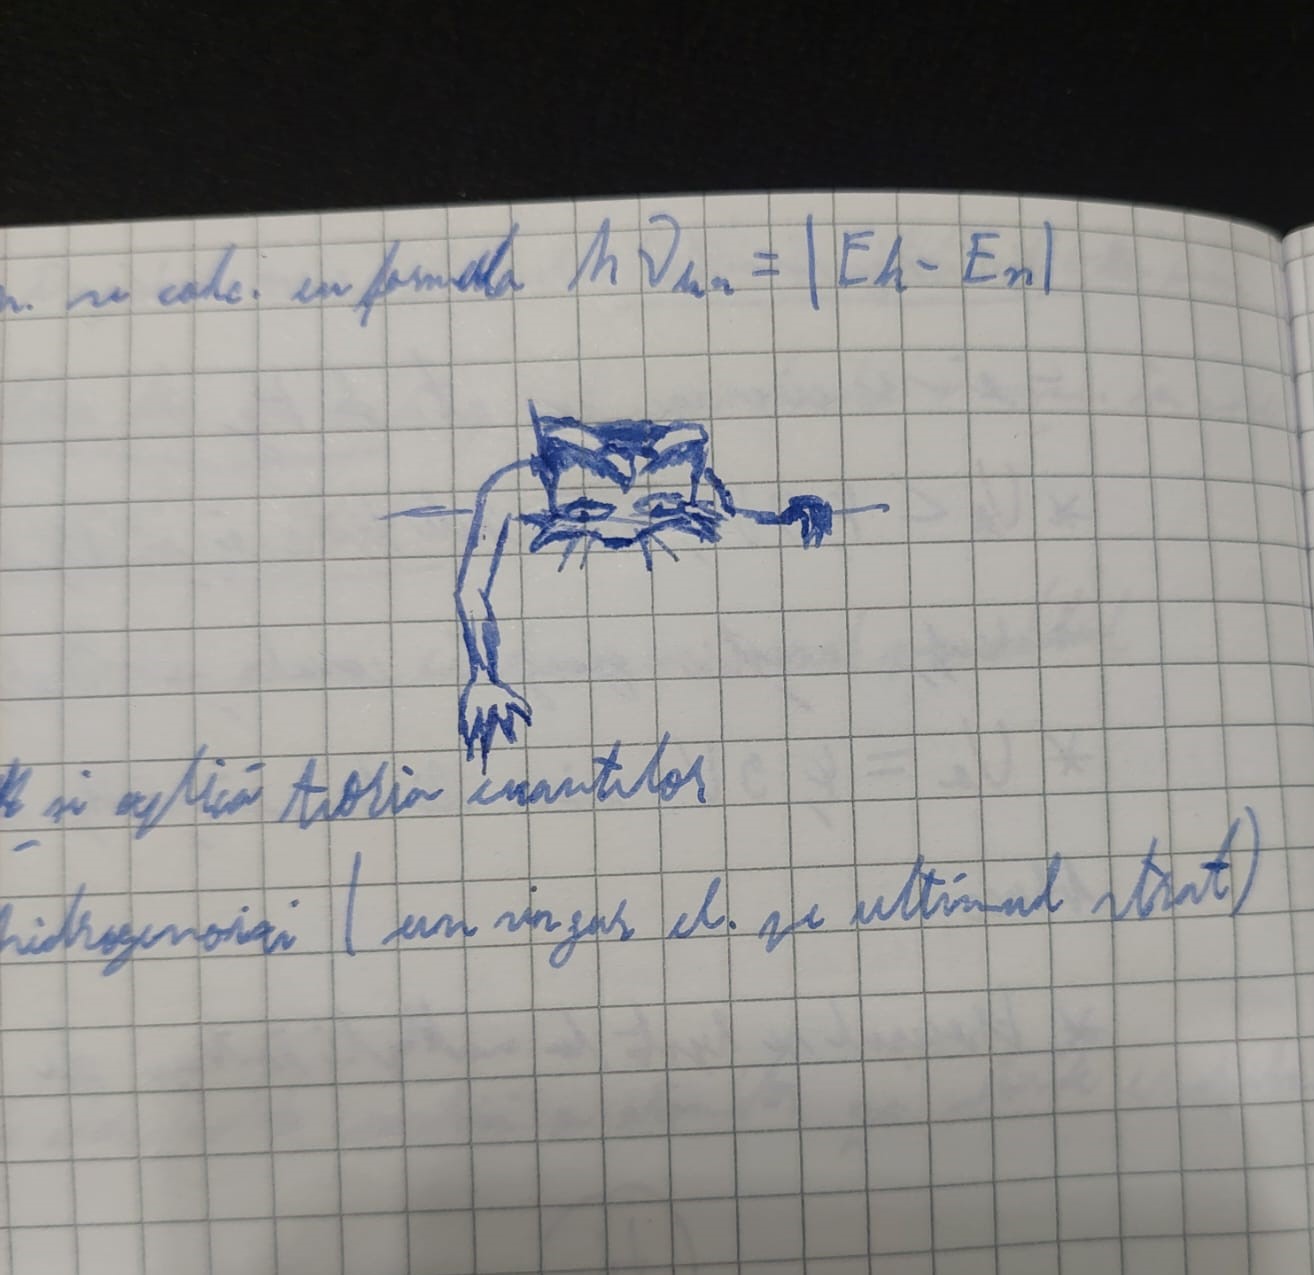 se calc. cu formula hν_kn = |Ek - En|
și aplică teoria cuantelor
hidrogenoizi (un singur el. pe ultimul strat)